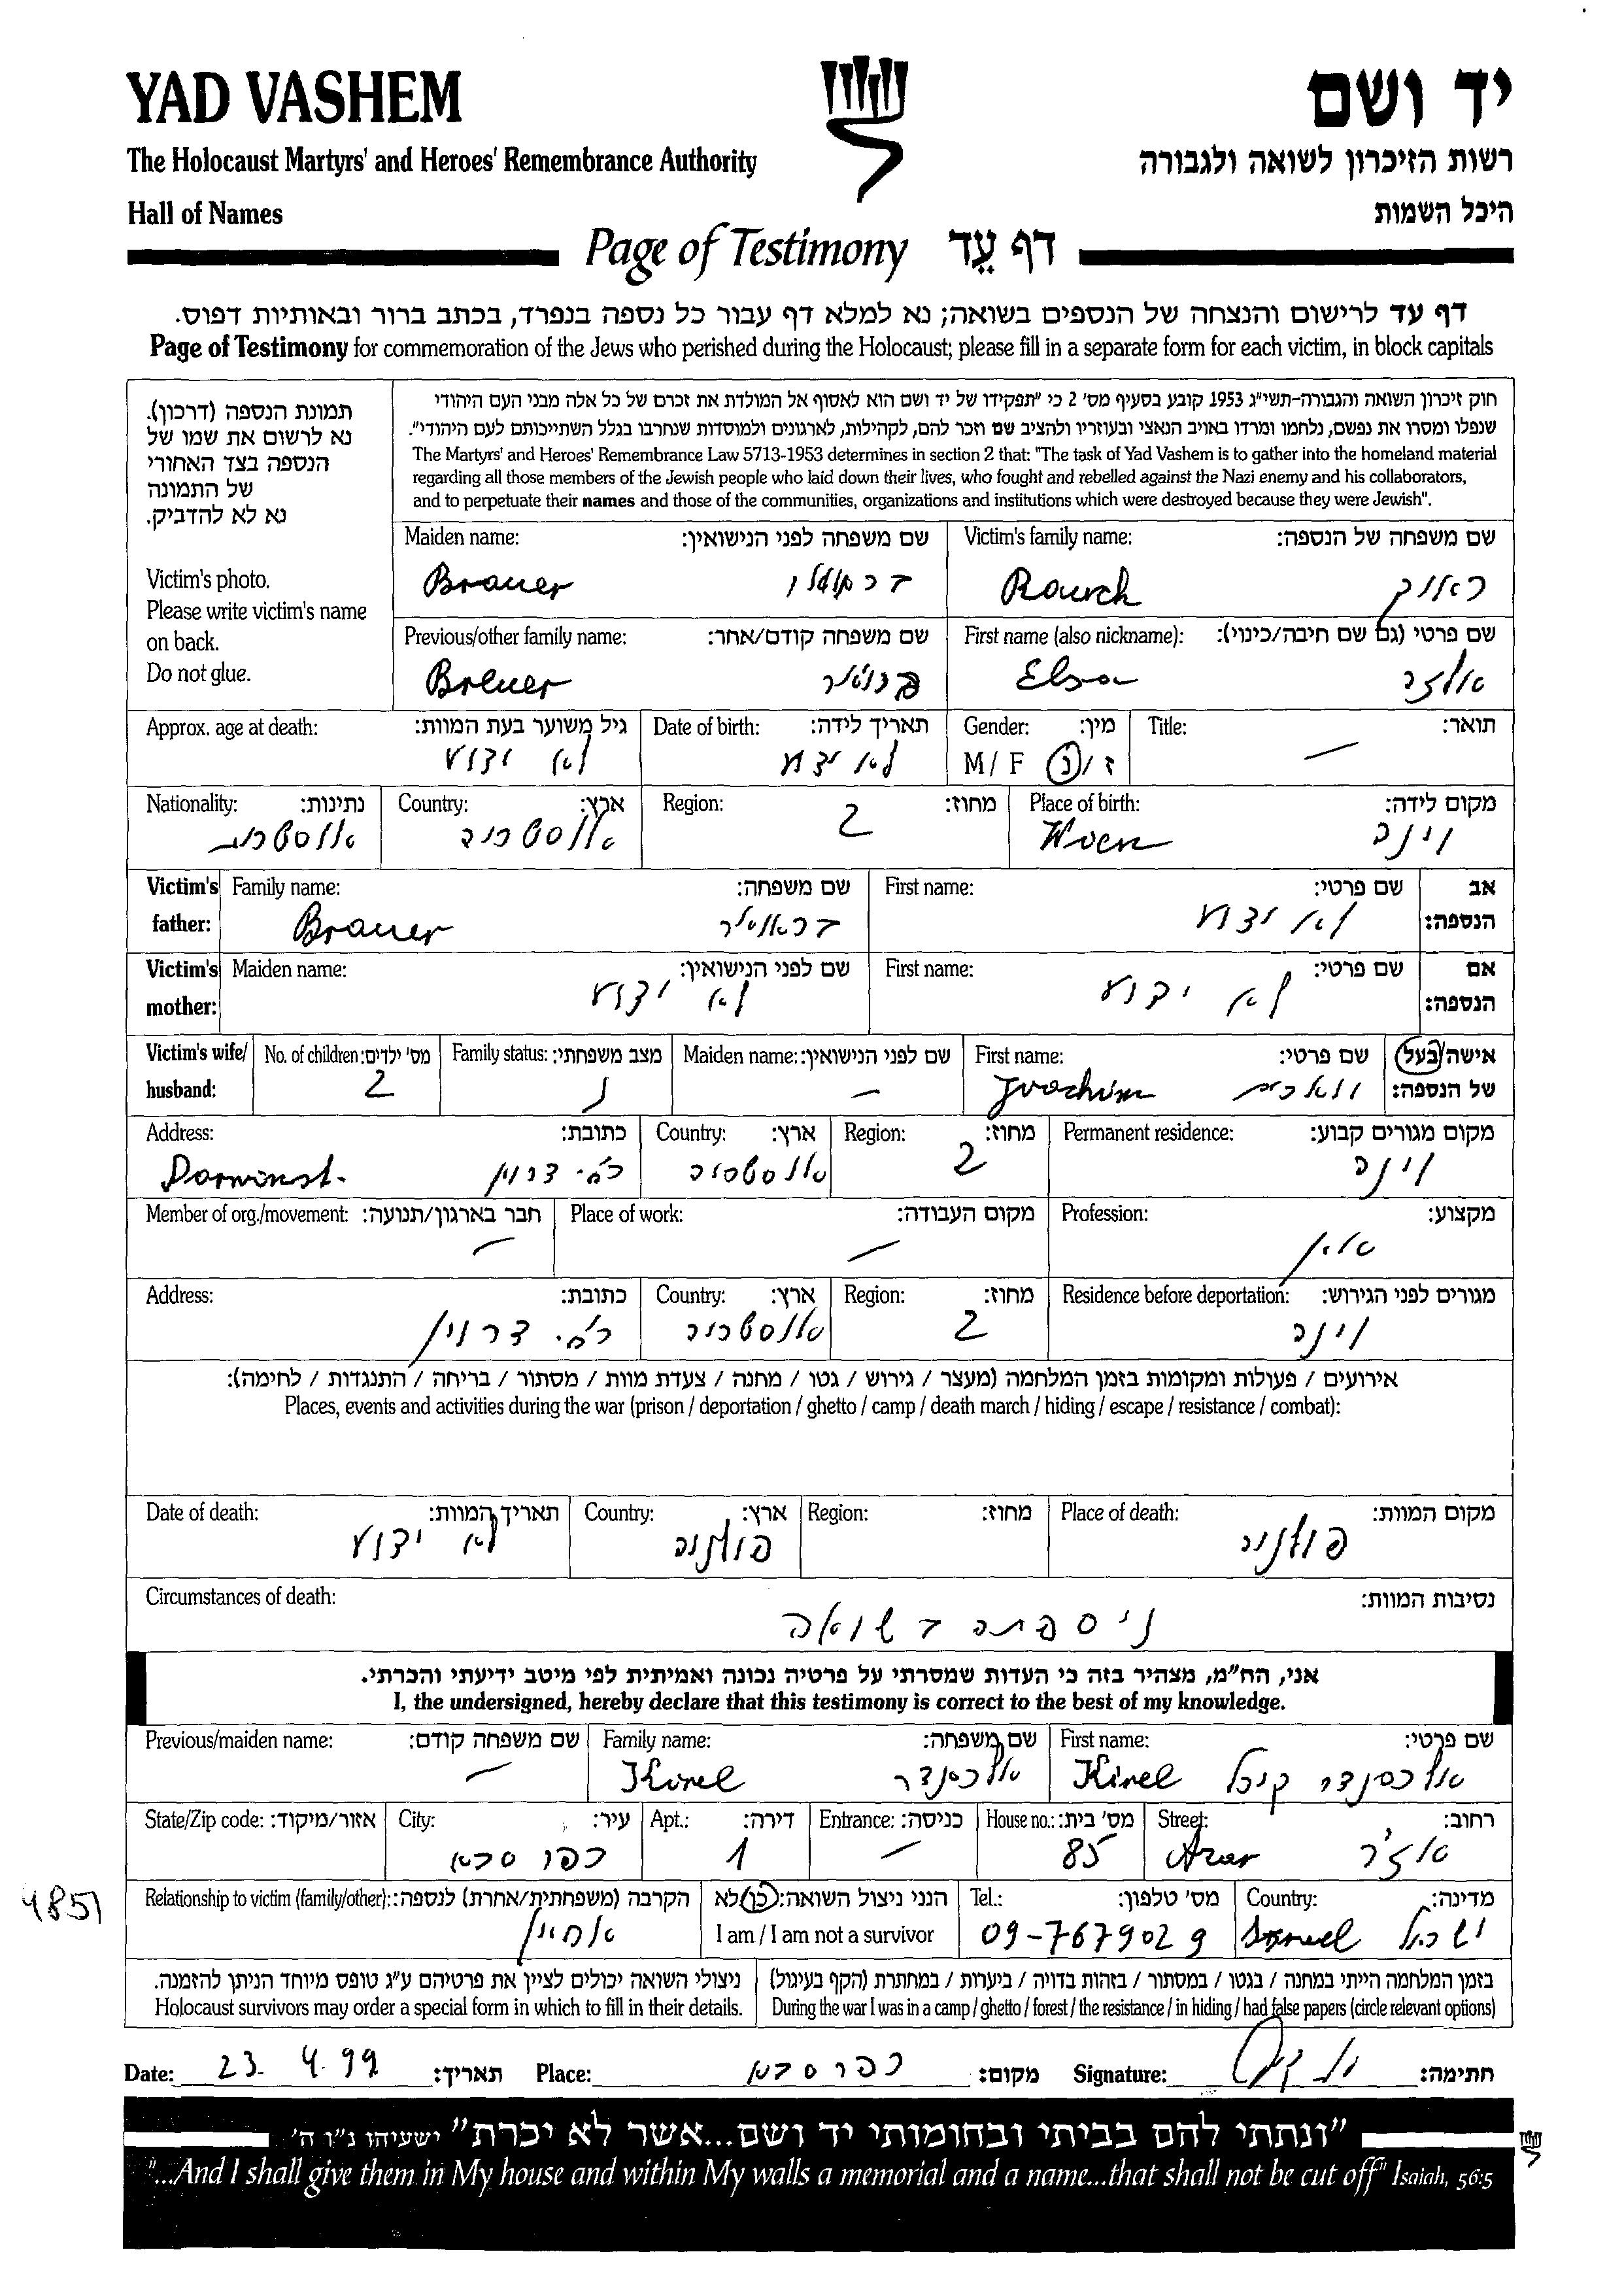 YAD VASHEM
יד ושם
The Holocaust Martyrs' and Heroes' Remembrance Authority
רשות הזיכרון לשואה ולגבורה
Hall of Names
היכל השמות
Page of Testimony דף עֵד
דף עד לרישום והנצחה של הנספים בשואה; נא למלא דף עבור כל נספה בנפרד, בכתב ברור ובאותיות דפוס.
Page of Testimony for commemoration of the Jews who perished during the Holocaust; please fill in a separate form for each victim, in block capitals
תמונת הנספה (דרכון).
נא לרשום את שמו של
הנספה בצד האחורי
של התמונה
נא לא להדביק.
Victim's photo.
Please write victim's name
on back.
Do not glue.
חוק זיכרון השואה והגבורה-תשי"ג 1953 קובע בסעיף מס' 2 כי "תפקידו של יד ושם הוא לאסוף אל המולדת את זכרם של כל אלה מבני העם היהודי
שנפלו ומסרו את נפשם, נלחמו ומרדו באויב הנאצי ובעוזריו ולהציב שם וזכר להם, לקהילות, לארגונים ולמוסדות שנחרבו בגלל השתייכותם לעם היהודי".
The Martyrs' and Heroes' Remembrance Law 5713-1953 determines in section 2 that: "The task of Yad Vashem is to gather into the homeland material
regarding all those members of the Jewish people who laid down their lives, who fought and rebelled against the Nazi enemy and his collaborators,
and to perpetuate their names and those of the communities, organizations and institutions which were destroyed because they were Jewish".
Maiden name: שם משפחה לפני הנישואין: Victim's family name: שם משפחה של הנספה:
Brauer Rauch ראוך
Previous/other family name: שם משפחה קודם/אחר: First name (also nickname): שם פרטי (גם שם חיבה/כינוי):
Breuer ברויאר Elsa אלזה
Approx. age at death: גיל משוער בעת המוות: Date of birth: תאריך לידה: Gender: מין: Title: תואר:
לא ידוע לא ידוע M / F ז / נ —
Nationality: נתינות: Country: ארץ: Region: מחוז: Place of birth: מקום לידה:
אוסטרית אוסטריה 2 Wien וינה
Victim's father: Family name: שם משפחה: First name: שם פרטי: אב הנספה:
Brauer בראואר לא ידוע
Victim's mother: Maiden name: שם לפני הנישואין: First name: שם פרטי: אם הנספה:
לא ידוע לא ידוע
Victim's wife/ husband: No. of children: מס' ילדים: Family status: מצב משפחתי: Maiden name: שם לפני הנישואין: First name: שם פרטי: אישה/בעל של הנספה:
2 נ — Joachim יואכים
Address: כתובת: Country: ארץ: Region: מחוז: Permanent residence: מקום מגורים קבוע:
Darwinst. רח. דרוין אוסטריה 2 וינה
Member of org./movement: חבר בארגון/תנועה: Place of work: מקום העבודה: Profession: מקצוע:
— —
Address: כתובת: Country: ארץ: Region: מחוז: Residence before deportation: מגורים לפני הגירוש:
רח. דרוין אוסטריה 2 וינה
אירועים / פעולות ומקומות בזמן המלחמה (מעצר / גירוש / גטו / מחנה / צעדת מוות / מסתור / בריחה / התנגדות / לחימה):
Places, events and activities during the war (prison / deportation / ghetto / camp / death march / hiding / escape / resistance / combat):
Date of death: תאריך המוות: Country: ארץ: Region: מחוז: Place of death: מקום המוות:
לא ידוע פולניה פולניה
Circumstances of death: נסיבות המוות:
ניספתה בשואה
אני, הח"מ, מצהיר בזה כי העדות שמסרתי על פרטיה נכונה ואמיתית לפי מיטב ידיעתי והכרתי.
I, the undersigned, hereby declare that this testimony is correct to the best of my knowledge.
Previous/maiden name: שם משפחה קודם: Family name: שם משפחה: First name: שם פרטי:
— Kinel אלכסנדר Kinel אלכסנדר קינל
State/Zip code: אזור/מיקוד: City: עיר: Apt.: דירה: Entrance: כניסה: House no.: מס' בית: Street: רחוב:
כפר סבא 1 — 85 Azar אז'ר
4851
Relationship to victim (family/other): הקרבה (משפחתית/אחרת) לנספה: הנני ניצול השואה: כן/לא Tel.: מס' טלפון: Country: מדינה:
אחיין I am / I am not a survivor 09-7679029 Israel ישראל
ניצולי השואה יכולים לציין את פרטיהם ע"ג טופס מיוחד הניתן להזמנה. בזמן המלחמה הייתי במחנה / בגטו / במסתור / בזהות בדויה / ביערות / במחתרת (הקף בעיגול)
Holocaust survivors may order a special form in which to fill in their details. During the war I was in a camp / ghetto / forest / the resistance / in hiding / had false papers (circle relevant options)
Date: 23.4.99 תאריך: Place: כפר סבא מקום: Signature: חתימה:
"ונתתי להם בביתי ובחומותי יד ושם...אשר לא יכרת" ישעיהו נ"ו ה'
"...And I shall give them in My house and within My walls a memorial and a name...that shall not be cut off" Isaiah, 56:5